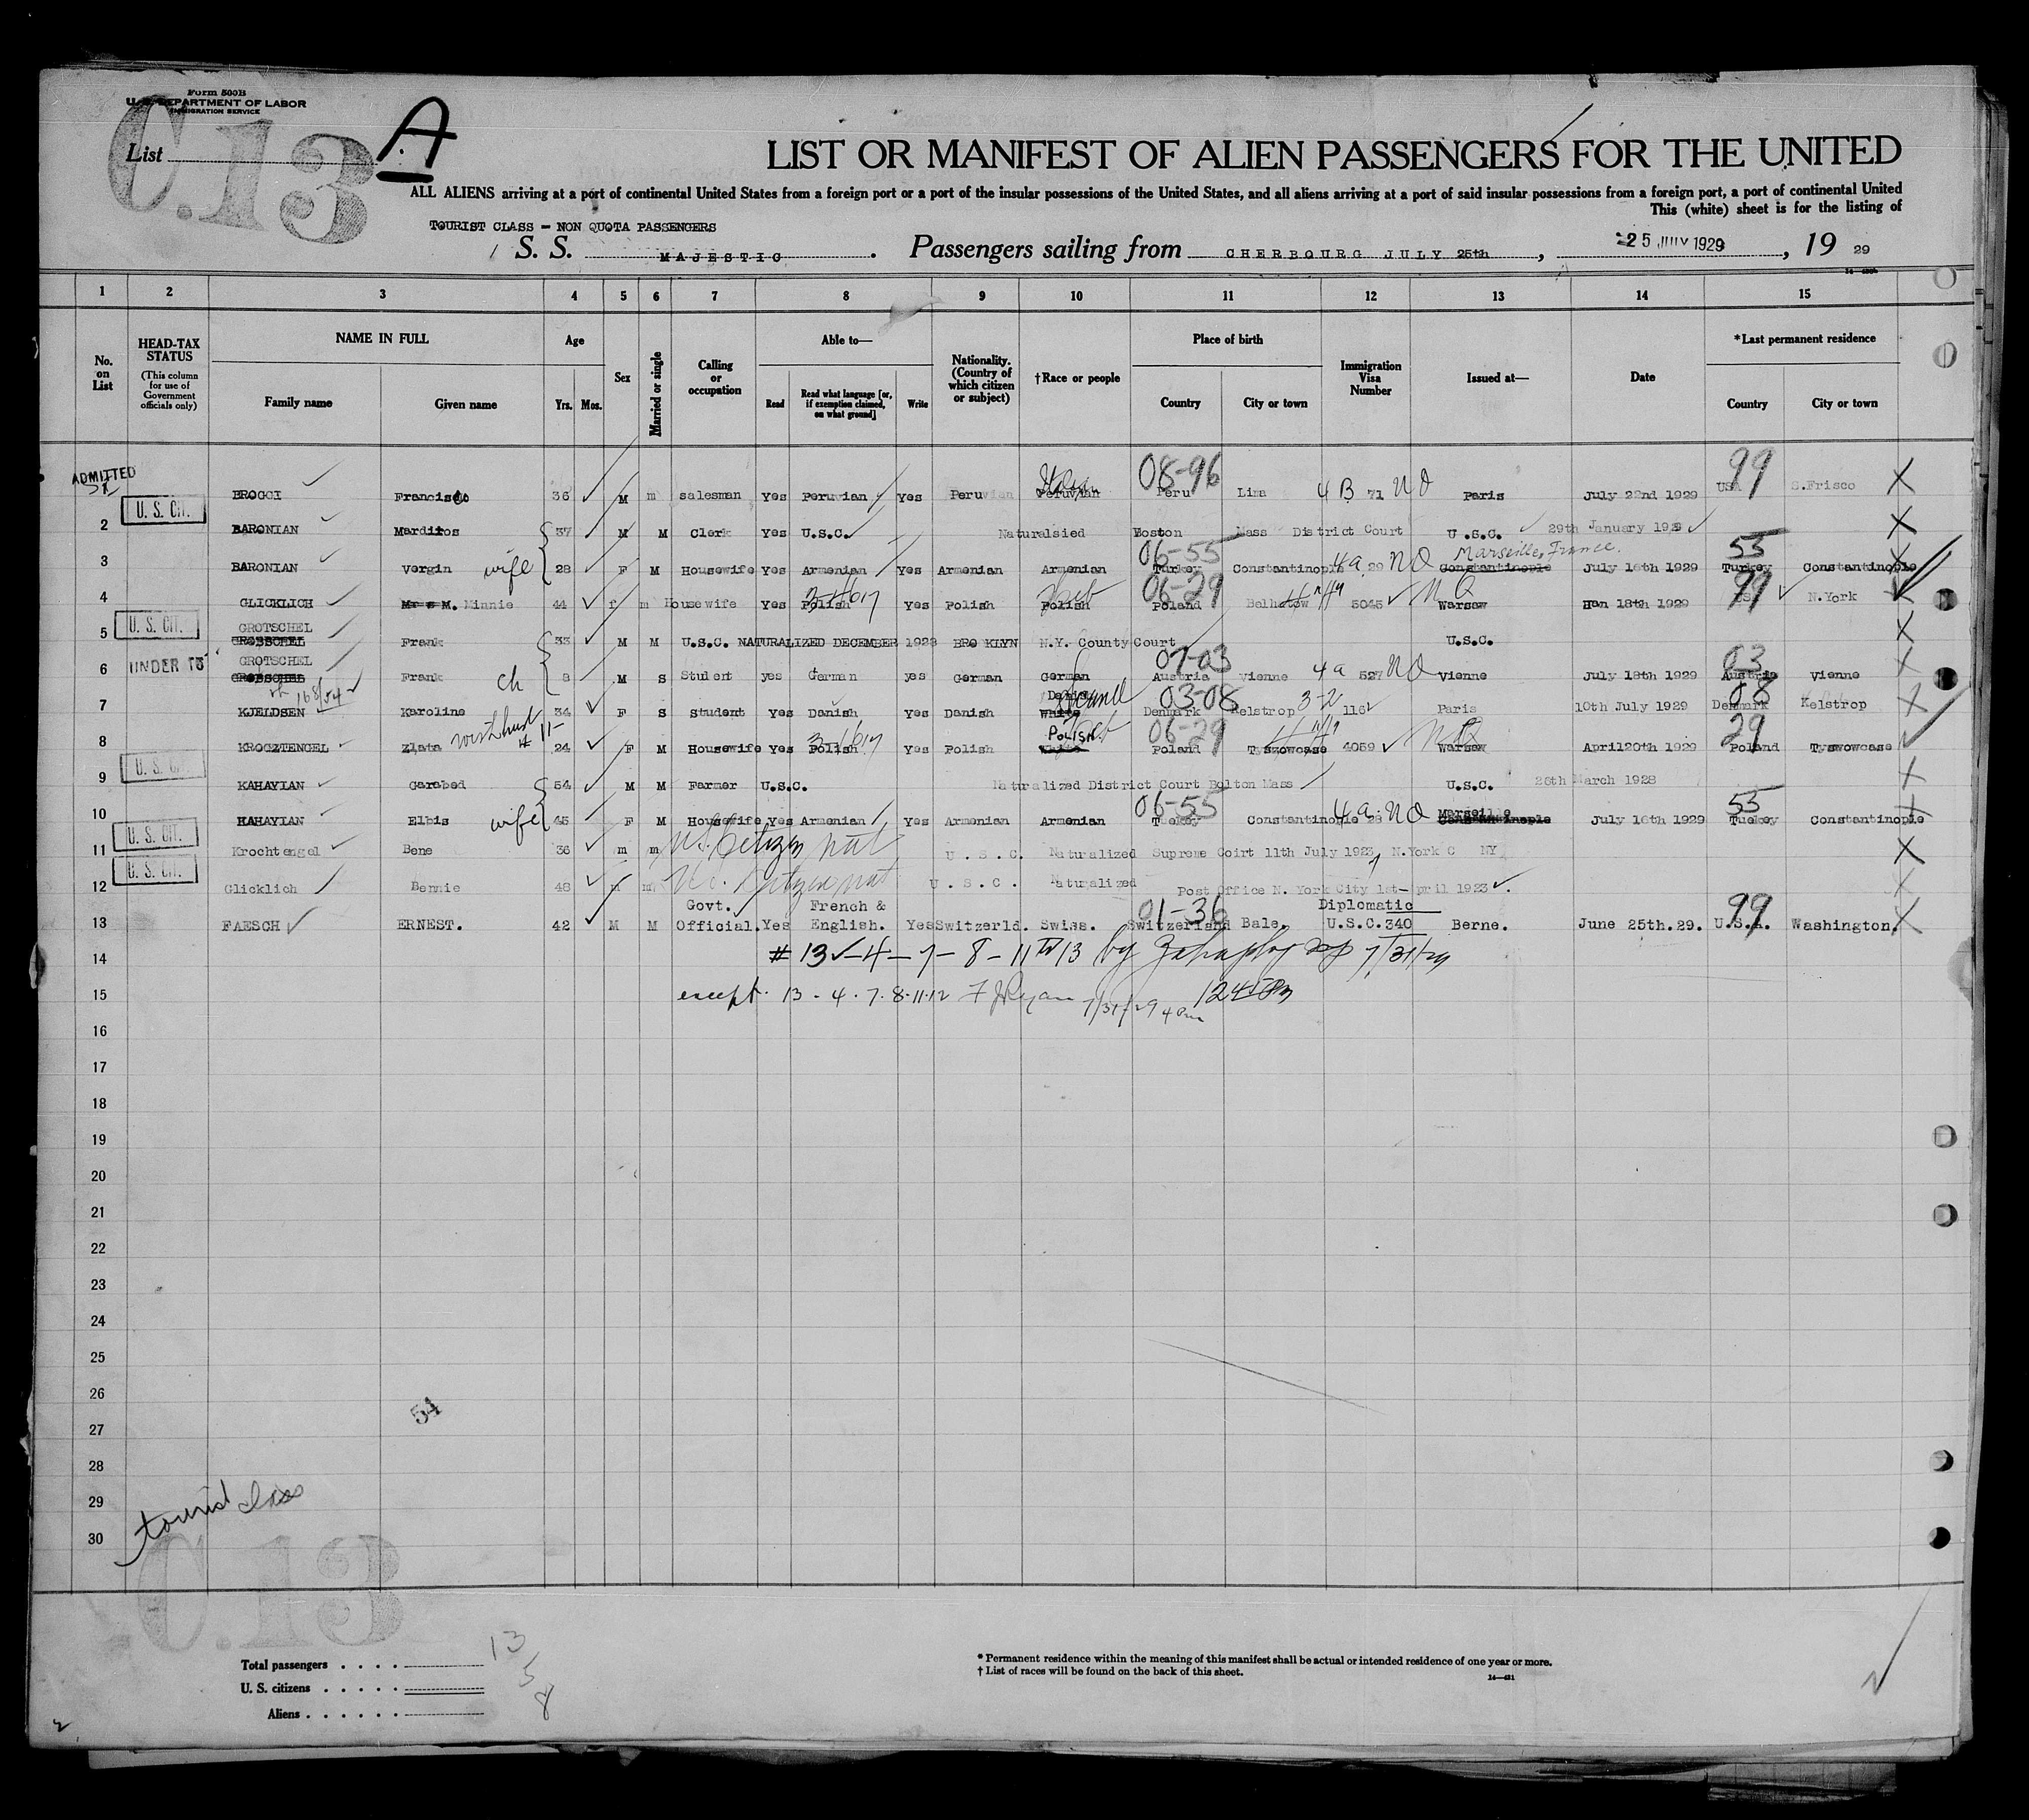 Form 500B
U. S. DEPARTMENT OF LABOR
IMMIGRATION SERVICE
C.13
List A
LIST OR MANIFEST OF ALIEN PASSENGERS FOR THE UNITED
ALL ALIENS arriving at a port of continental United States from a foreign port or a port of the insular possessions of the United States, and all aliens arriving at a port of said insular possessions from a foreign port, a port of continental United
This (white) sheet is for the listing of
TOURIST CLASS - NON QUOTA PASSENGERS
S. S. MAJESTIC . Passengers sailing from CHERBOURG JULY 25th , 25 JULY 1929 , 19 29
1 2 3 4 5 6 7 8 9 10 11 12 13 14 15
No. on List
HEAD-TAX STATUS
(This column for use of Government officials only)
NAME IN FULL
Family name Given name
Age
Yrs. Mos.
Sex
Married or single
Calling or occupation
Able to—
Read Read what language [or, if exemption claimed, on what ground] Write
Nationality. (Country of which citizen or subject)
†Race or people
Place of birth
Country City or town
Immigration Visa Number
Issued at—
Date
*Last permanent residence
Country City or town
ADMITTED
08-96 99
BROGGI Francisco 36 M m salesman Yes Peruvian Yes Peruvian Peruvian Peru Lima 4 B 71 NQ Paris July 22nd 1929 USA S.Frisco
U. S. CIT.
2 BARONIAN Mardiros 37 M M Clerk Yes U.S.C. Naturalsied Boston Mass District Court U.S.C. 29th January 1929
06-55 Marseille, France. 55
3 BARONIAN Vergin wife 28 F M Housewife Yes Armenian Yes Armenian Armenian Turkey Constantinople 4a 29 NQ Constantinople July 16th 1929 Turkey Constantinople
06-29 99
4 GLICKLICH Mrs M. Minnie 44 f m Housewife Yes Polish Yes Polish Polish Poland 5045 NQ Warsaw 18th 1929 N.York
U. S. CIT.
GROTSCHEL
5 Frank 33 M M U.S.C. NATURALIZED DECEMBER 1928 BRO KLYN N.Y. County Court U.S.C.
GROTSCHEL 07-03 03
6 UNDER Frank ch 8 M S Student yes German yes German German Austria Vienne 4a 527 NQ Vienne July 18th 1929 Austria Vienne
168/54 Danish 03-08 08
7 KJELDSEN Karoline 34 F S Student Yes Danish Yes Danish White Denmark Kelstrop 3-2 116 Paris 10th July 1929 Denmark Kelstrop
with husb # 11- POLISH 06-29 29
8 KROCZTENGEL Zlata 24 F M Housewife Yes Polish Yes Polish Poland Tyszowcase 4059 NQ Warsaw April20th 1929 Poland Tyswowcase
U. S. CIT.
9 KAHAYIAN Garabed 54 M M Farmer U.S.C. Naturalized District Court Bolton Mass U.S.C. 26th March 1928
06-55 Marseille 55
10 KAHAYIAN Elbis wife 45 F M Housewife Yes Armenian Yes Armenian Armenian Turkey Constantinople 4a 28 NQ Constantinople July 16th 1929 Turkey Constantinople
U. S. CIT.
11 Krochtengel Bene 36 m m U.S. Citizen nat U.S.C. Naturalized Supreme Coirt 11th July 1923, N.York C NY
U. S. CIT.
12 Glicklich Bennie 48 m m U.S. Citizen nat U.S.C. Naturalized Post Office N. York City 1st April 1923.
Govt. French & 01-36 Diplomatic 99
13 FAESCH ERNEST. 42 M M Official. Yes English. Yes Switzerld. Swiss. Switzerland Bale. U.S.C.340 Berne. June 25th.29. U.S.A. Washington.
14 # 13 - 4 - 7 - 8 - 11 by 7/31/29
15 except 13 - 4 - 7. 8. 11. 12 F J Ryan 7/31/29 4 Pm
16
17
18
19
20
21
22
23
24
25
26
54
27
28
29
tourist class
30
C.13
Total passengers . . . . 13
U. S. citizens . . . . . 5
Aliens . . . . . . 8
* Permanent residence within the meaning of this manifest shall be actual or intended residence of one year or more.
† List of races will be found on the back of this sheet.